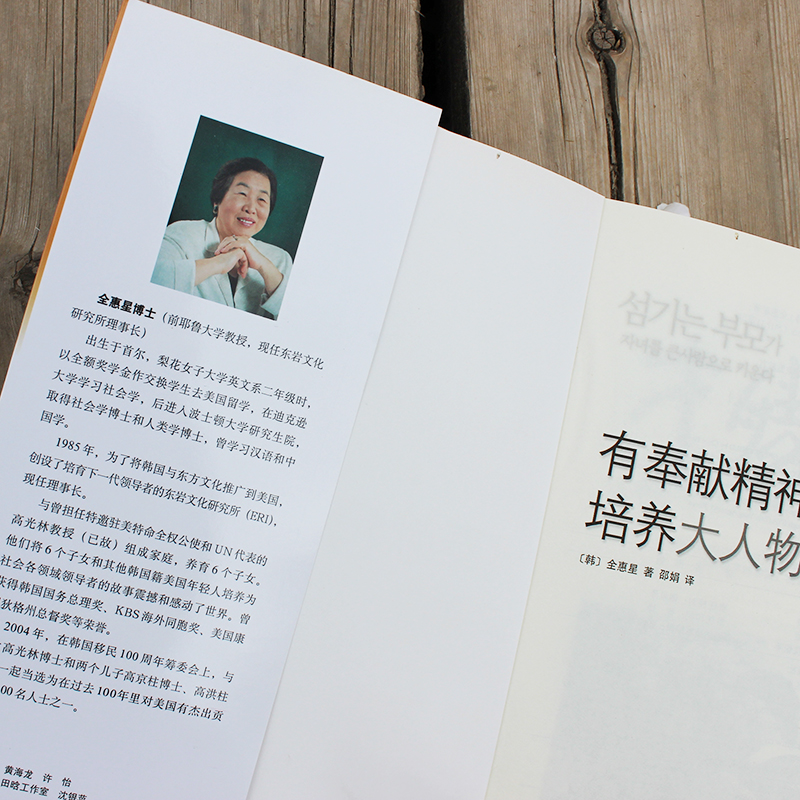 全惠星博士（前耶鲁大学教授，现任东岩文化
研究所理事长）
出生于首尔，梨花女子大学英文系二年级时，
以全额奖学金作交换学生去美国留学，在迪克逊
大学学习社会学，后进入波士顿大学研究生院，
取得社会学博士和人类学博士，曾学习汉语和中
国学。
1985年，为了将韩国与东方文化推广到美国，
创设了培育下一代领导者的东岩文化研究所（ERI），
现任理事长。
与曾担任特邀驻美特命全权公使和UN代表的
高光林教授（已故）组成家庭，养育6个子女。
他们将6个子女和其他韩国籍美国年轻人培养为
社会各领域领导者的故事震撼和感动了世界。曾
获得韩国国务总理奖、KBS海外同胞奖、美国康
狄格州总督奖等荣誉。
2004年，在韩国移民100周年筹委会上，与
高光林博士和两个儿子高京柱博士、高洪柱
一起当选为在过去100年里对美国有杰出贡
00名人士之一。
黄海龙 许 怡
田晗工作室 沈银苑
섬기는 부모가
자녀를 큰사람으로 키운다
有奉献精神
培养大人物
〔韩〕全惠星 著 邵娟 译